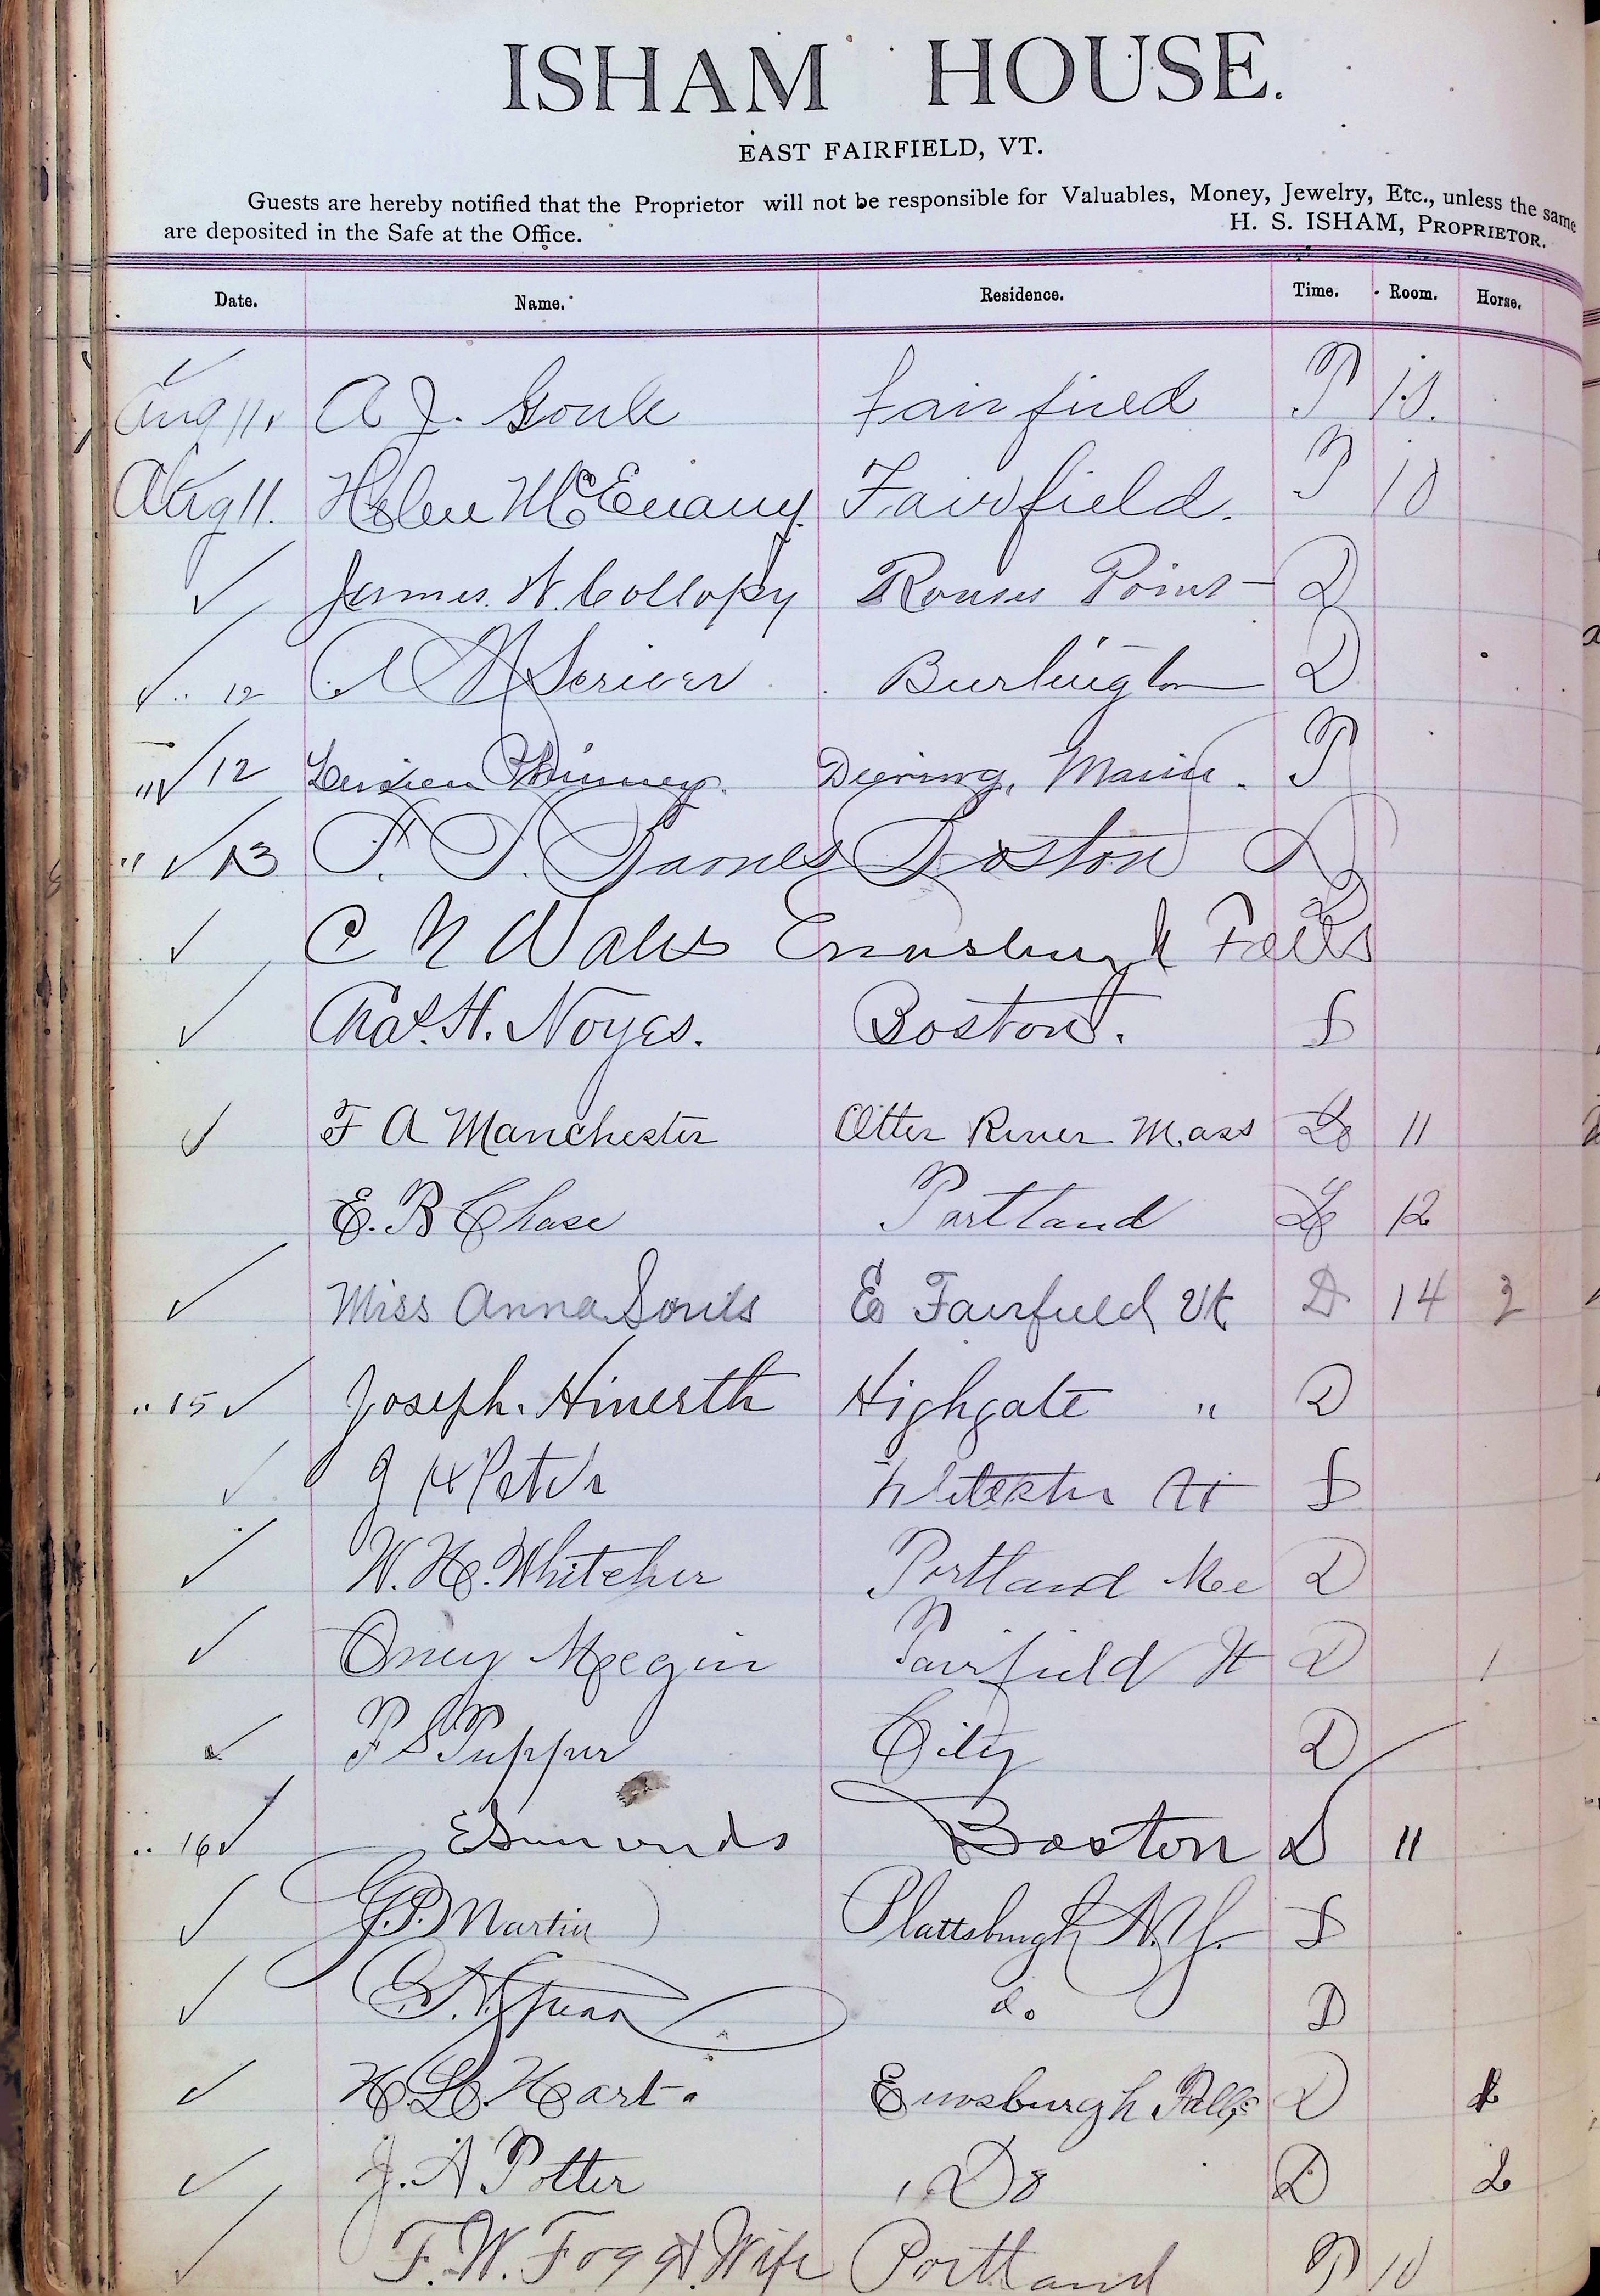 ISHAM HOUSE.
EAST FAIRFIELD, VT.
Guests are hereby notified that the Proprietor will not be responsible for Valuables, Money, Jewelry, Etc., unless the same
are deposited in the Safe at the Office. H. S. ISHAM, PROPRIETOR.
Date. Name. Residence. Time. Room. Horse.
Aug 11. A J. Fairfield
Aug 11. Helen McEnany. Fairfield. 10
James W. Collopy Rouses Point D
.. 12 A N Scriver Burlington D
" 12 Phinney. Deering, Maine.
" 13 F. S. Barnes Boston
C N Wales Enosburgh Falls
Chas. H. Noyes. Boston. S
F A Manchester Otter River Mass 11
E. B Chase Portland 12
Miss Anna Souls E Fairfield Vt D 14 2
.. 15 Joseph. Hinerth Highgate " D
S
W. H. Whitcher Portland Me D
Fairfield Vt D 1
City D
.. 16 Edmunds Boston 11
G. D. Martin Plattsburgh N.Y. S
do D
H. L. Hart. Enosburgh Falls D
J. A Potter Do D 2
F. W. Fogg & Wife Portland 10